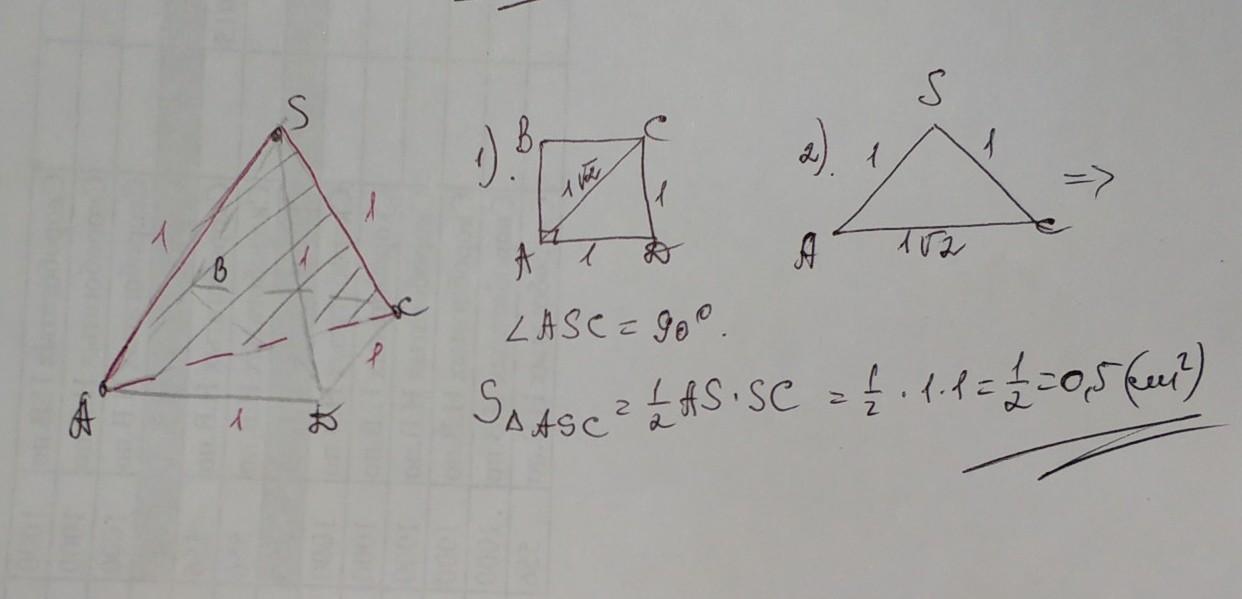 S
1
1
B
1
C
1
A
1
D
1).
B
C
1√2
1
A
1
D
2).
S
1
1
=>
A
1√2
C
∠ASC = 90°.
S△ASC = 1/2 AS · SC = 1/2 · 1 · 1 = 1/2 = 0,5 (см²)